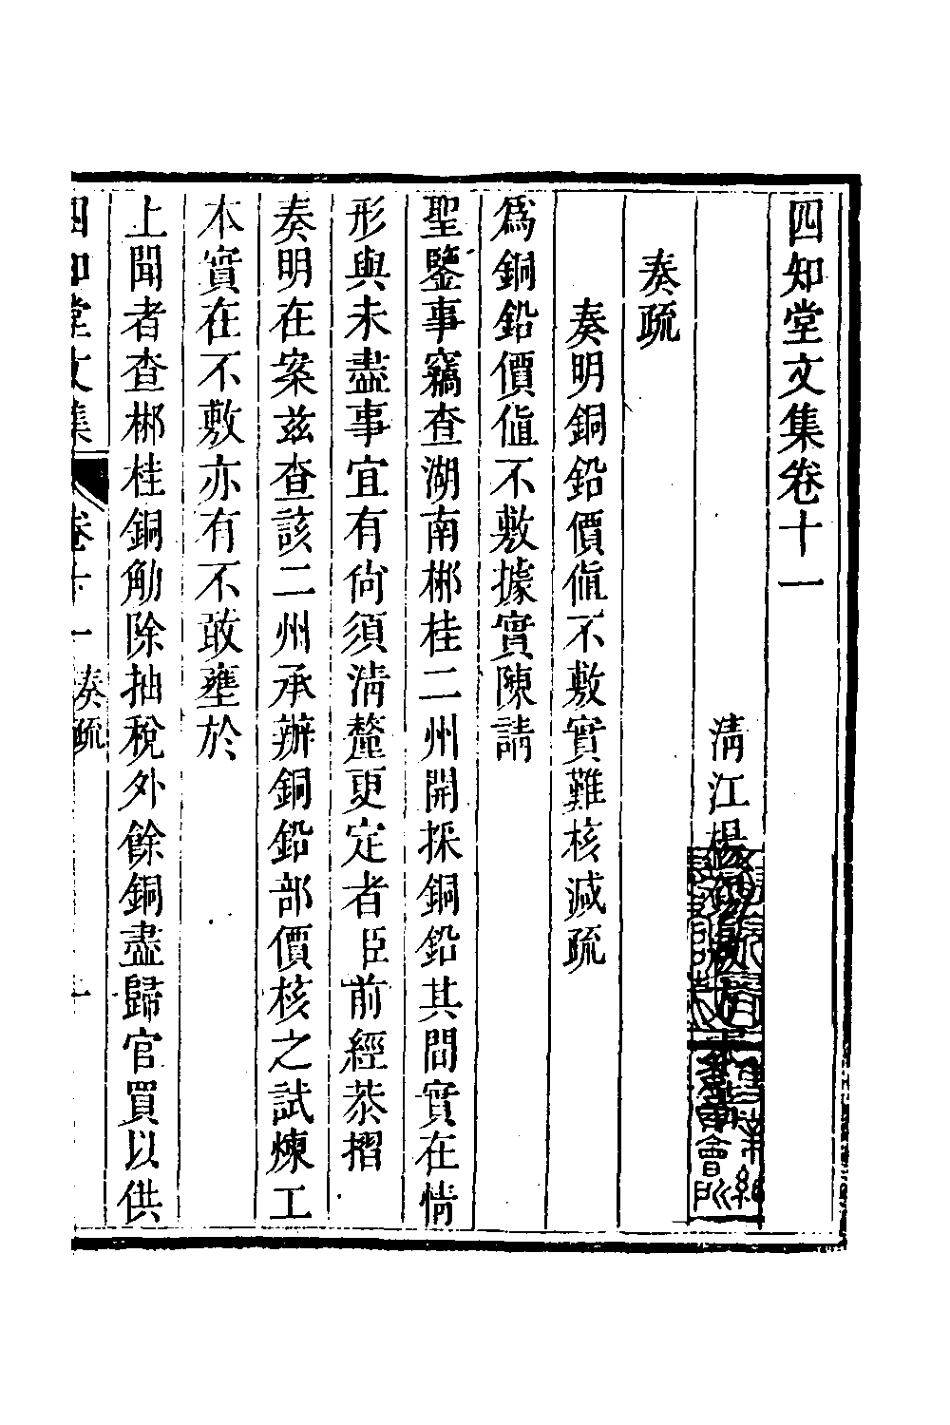 四知堂文集卷十一
清江楊
奏疏
奏明銅鉛價值不敷實難核減疏
爲銅鉛價值不敷據實陳請
聖鑒事竊查湖南郴桂二州開採銅鉛其間實在情
形與未盡事宜有尙須淸釐更定者臣前經恭摺
奏明在案茲查該二州承辦銅鉛部價核之試煉工
本實在不敷亦有不敢壅於
上聞者查郴桂銅觔除抽稅外餘銅盡歸官買以供
四知堂文集 卷十一 奏疏 一